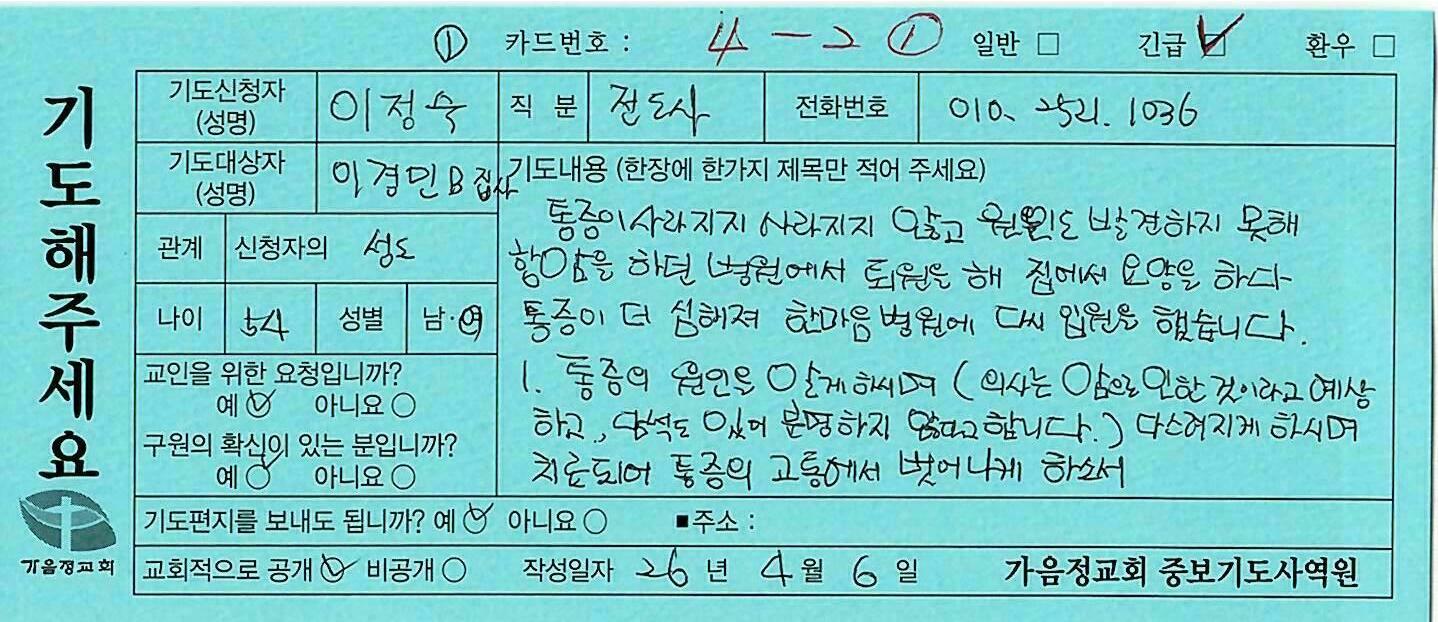 ① 카드번호 : 4-2 ① 일반 □ 긴급 ☑ 환우 □
기도해주세요
가음정교회
기도신청자 (성명) 이정숙 직 분 전도사 전화번호 010. 2521. 1036
기도대상자 (성명) 이경민B집사
관계 신청자의 성도
나이 54 성별 남·여
교인을 위한 요청입니까?
예 ✓ 아니요 ○
구원의 확신이 있는 분입니까?
예 ✓ 아니요 ○
기도내용 (한장에 한가지 제목만 적어 주세요)
통증이 사라지지 사라지지 않고 원인도 발견하지 못해
항암을 하던 병원에서 퇴원을 해 집에서 요양을 하다
통증이 더 심해져 한마음병원에 다시 입원을 했습니다.
1. 통증의 원인을 알게하시며 (의사는 암으로 인한 것이라고 예상
하고, 담석도 있어 분명하지 않다고 합니다.) 다스려지게 하시며
치료되어 통증의 고통에서 벗어나게 하소서
기도편지를 보내도 됩니까? 예 ✓ 아니요 ○ ■주소 :
교회적으로 공개 ✓ 비공개 ○ 작성일자 26 년 4 월 6 일 가음정교회 중보기도사역원